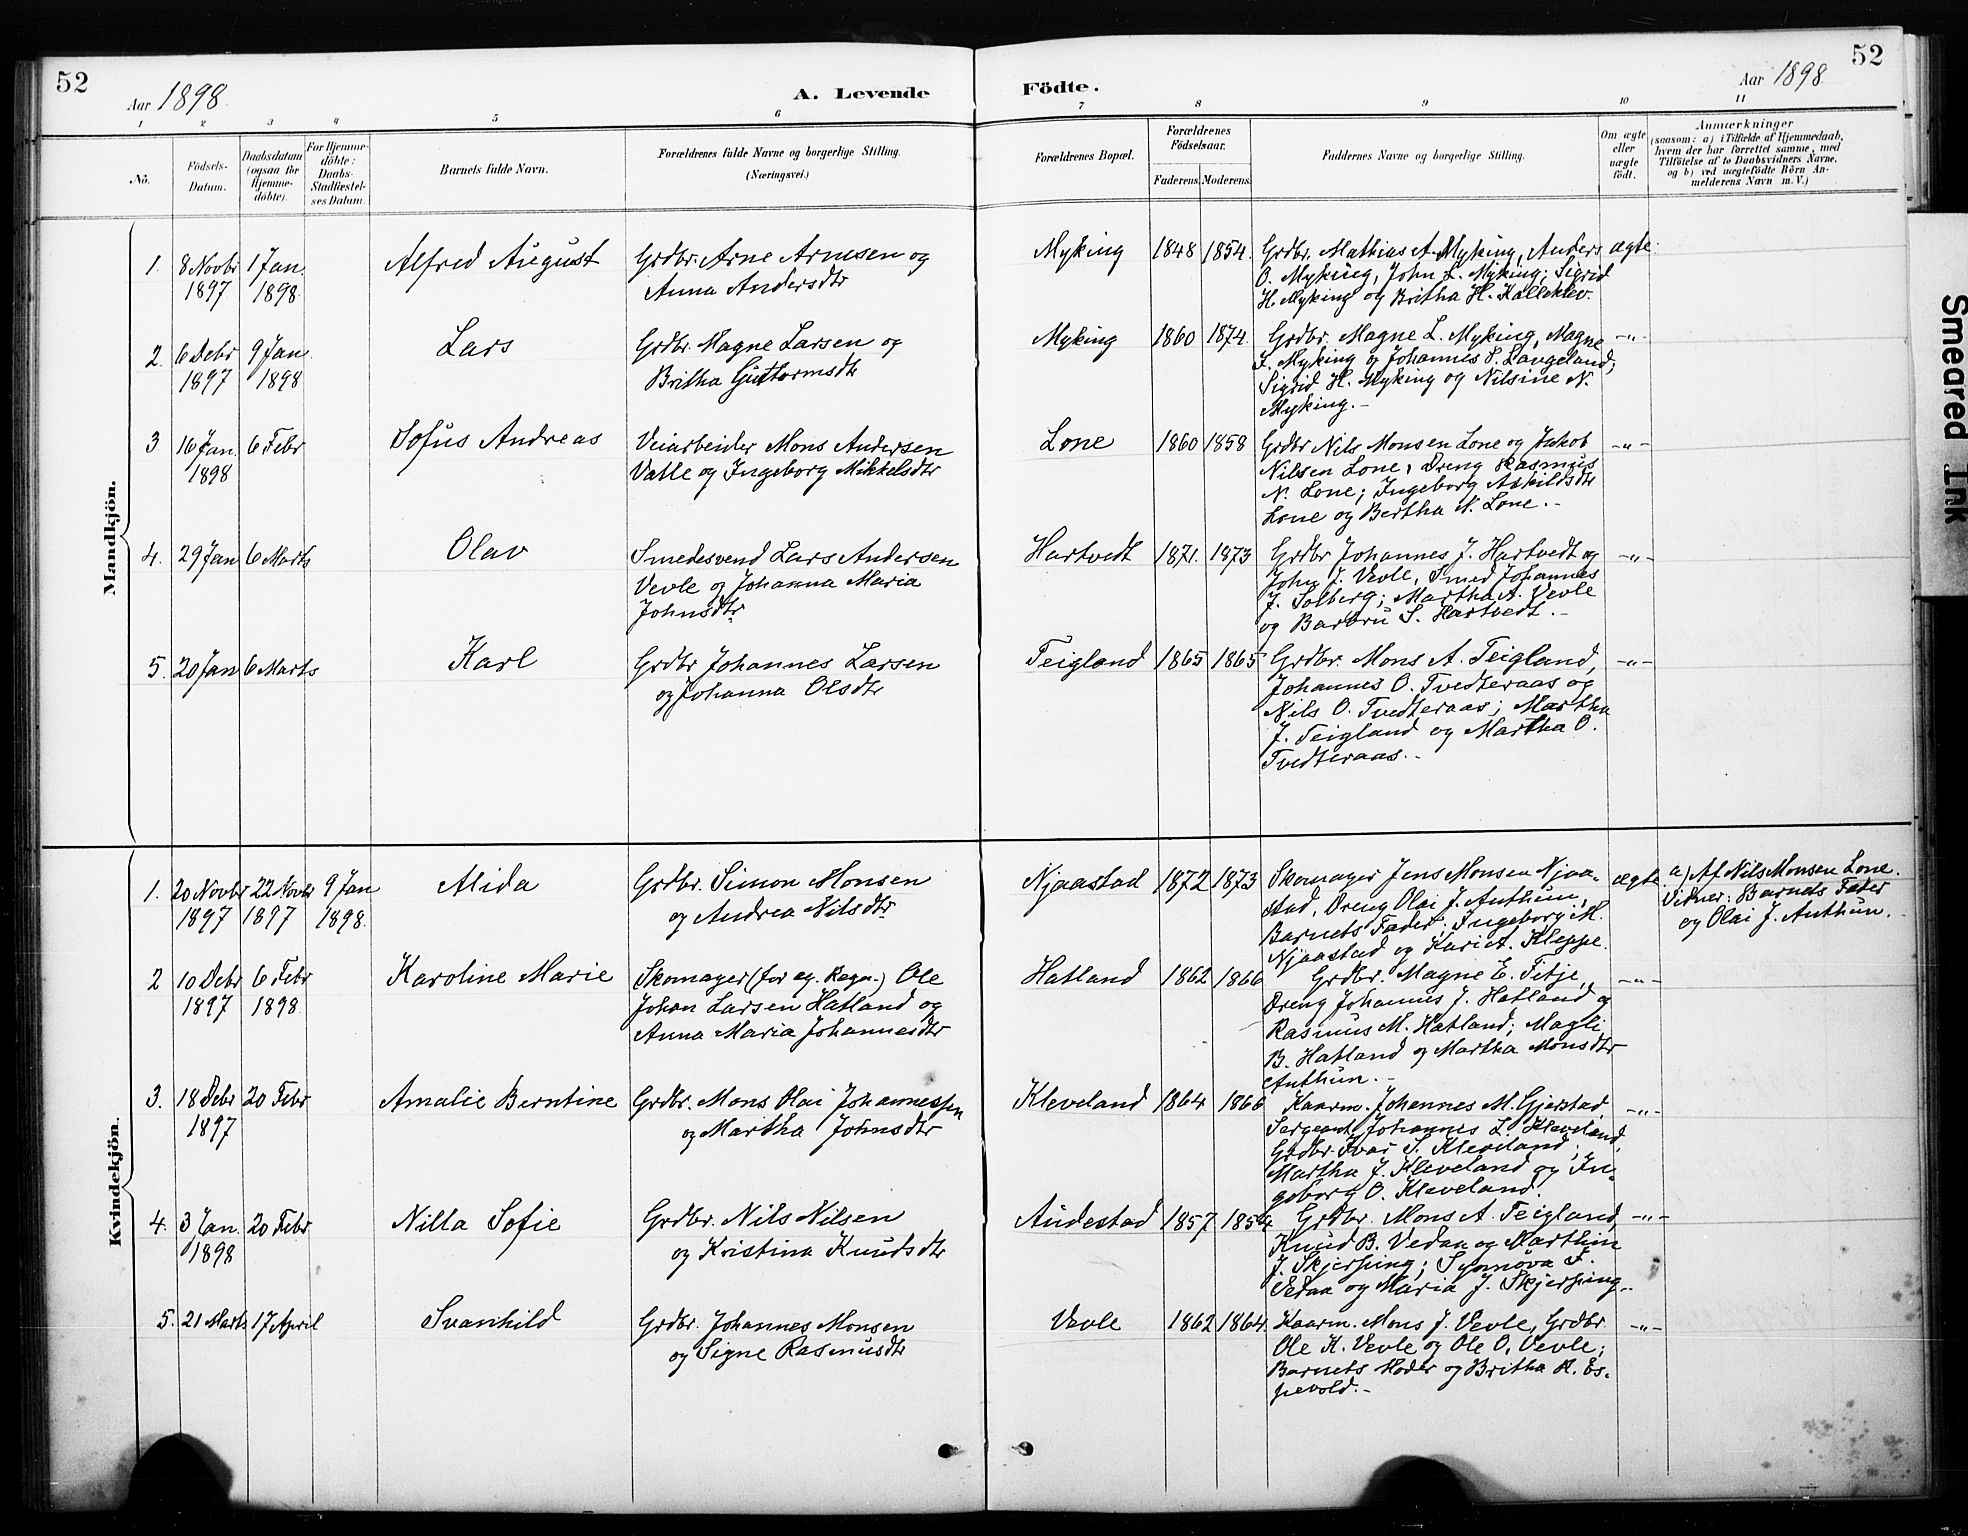 52
52
Aar 1898.
A. Levende
Födte.
Aar 1898
1 2 3 4 5 6 7 8 9 10 11
No.
Födsels-
Datum.
Daabsdatum
(ogsaa for
Hjemme-
döbte).
For Hjemme-
döbte:
Daabs-
Stadfæstel-
ses Datum.
Barnets fulde Navn.
Forældrenes fulde Navne og borgerlige Stilling.
(Næringsvei.)
Forældrenes Bopæl.
Forældrenes
Födselsaar.
Faderens. Moderens.
Faddernes Navne og borgerlige Stilling.
Om ægte
eller
uægte
födt.
Anmærkninger
(saasom: a) i Tilfælde af Hjemmedaab,
hvem der har forrettet samme, med
Tilföielse af to Daabsvidners Navne,
og b) ved uægtefödte Börn An-
melderens Navn m. V.)
Mandkjön.
1. 8 Novbr 1897
1 Jan. 1898
Alfred August
Grdbr. Arne Arnesen og
Anna Andersdtr
Myking 1848 1854
Grdbr. Mathias A. Myking, Anders
O. Myking, John L. Myking; Sigrid
H. Myking og Britha H. Kalleklev.
ægte.
2. 6 Debr 1897
9 Jan. 1898
Lars
Grdbr. Magne Larsen og
Britha Guttormsdtr
Myking 1860 1874.
Grdbr. Magne L. Myking, Magne
F. Myking og Johannes S. Langeland;
Sigrid H. Myking og Nilsine N.
Myking.-
-"-
3 16 Jan. 1898
6 Febr
Sofus Andreas
Veiarbeider Mons Andersen
Valle og Ingeborg Mikkelsdtr
Lone 1860 1858
Grdbr Nils Monsen Lone og Jakob
Nilsen Lone, Dreng Rasmus
N. Lone; Ingeborg Askildsdtr
Lone og Bertha N. Lone.-
-"-
4. 29 Jan
6 Marts
Olav
Smedesvend Lars Andersen
Vevle og Johanna Maria
Johnsdtr.
Hartvedt 1871. 1873
Grdbr Johannes J. Hartvedt og
John J. Vevle, Smed Johannes
J. Solberg; Martha A. Vevle
og Barbru S. Hartvedt.-
-"-
5. 20 Jan
6 Marts
Karl
Grdbr Johannes Larsen
og Johanna Olsdtr
Teigland 1865 1865
Grdbr. Mons A. Teigland,
Johannes O. Tvedteraas og
Nils O. Tvedteraas; Martha
J. Teigland og Martha O.
Tvedteraas.-
-"-
Kvindekjön.
1. 20 Novbr 1897
22 Novbr 1897
9 Jan 1898.
Alida
Grdbr. Simon Monsen
og Andrea Nilsdtr
Njaastad 1872 1873
Skomager Jens Monsen Njaa-
stad, Dreng Olai J. Anthun,
Barnets Fader; Ingeborg M.
Njaastad og Kari A. Kleppe.
ægte
a) Af Nils Monsen Lone.
Vidner: Barnets Fader
og Olai J. Anthun.
2 10 Debr 1897
6 Febr 1898.
Karoline Marie
Skomager (for eg. Regn.) Ole
Johan Larsen Hatland og
Anna Maria Johannesdtr
Hatland 1862 1866
Grdbr. Magne E. Titje,
Dreng Johannes J. Hatland og
Rasmus M. Hatland; Magli
B. Hatland og Martha Monsdtr
Anthun.-
-"-
3. 18 Debr 1897
20 Febr
Amalie Berntine
Grdbr. Mons Olai Johannessen
og Martha Johnsdtr
Kleveland 1864 1866
Kaarm. Johannes M. Gjerstad,
Sergeant Johannes L. Kleveland,
Grdbr. Ivar S. Kleveland;
Martha J. Kleveland og In-
geborg O. Kleveland.
-"-
4. 3 Jan. 1898
20 Febr
Nilla Sofie
Grdbr. Nils Nilsen
og Kristina Knudsdtr
Audestad 1857 1854
Grdbr. Mons A. Teigland,
Knud B. Vedaa og Marthin
J. Skjerping; Synnöva F.
Vedaa og Maria J. Skjerping.-
-"-
5. 21 Marts
17 April
Svanhild
Grdbr. Johannes Monsen
og Signe Rasmusdtr
Vevle 1862 1864.
Kaarm. Mons J. Vevle, Grdbr
Ole K. Vevle og Ole O. Vevle;
Barnets Moder og Britha R. Es-
pevold.-
-"-
Smeared Ink